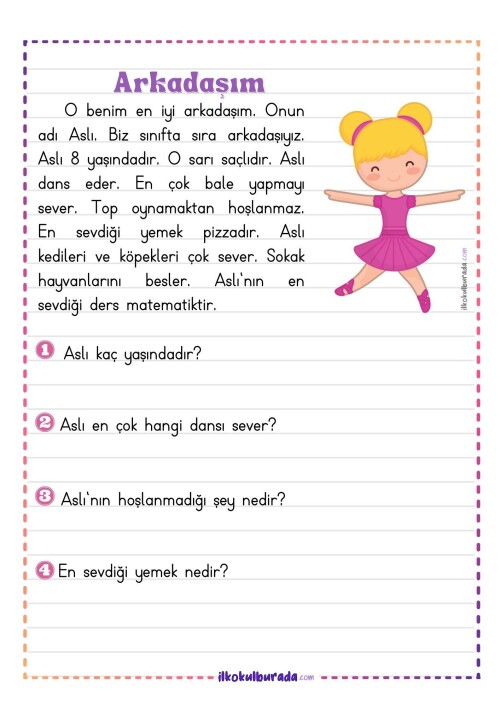 Arkadaşım
O benim en iyi arkadaşım. Onun
adı Aslı. Biz sınıfta sıra arkadaşıyız.
Aslı 8 yaşındadır. O sarı saçlıdır. Aslı
dans eder. En çok bale yapmayı
sever. Top oynamaktan hoşlanmaz.
En sevdiği yemek pizzadır. Aslı
kedileri ve köpekleri çok sever. Sokak
hayvanlarını besler. Aslı'nın en
sevdiği ders matematiktir.
ilkokulburada.com
1 Aslı kaç yaşındadır?
2 Aslı en çok hangi dansı sever?
3 Aslı'nın hoşlanmadığı şey nedir?
4 En sevdiği yemek nedir?
ilkokulburada.com